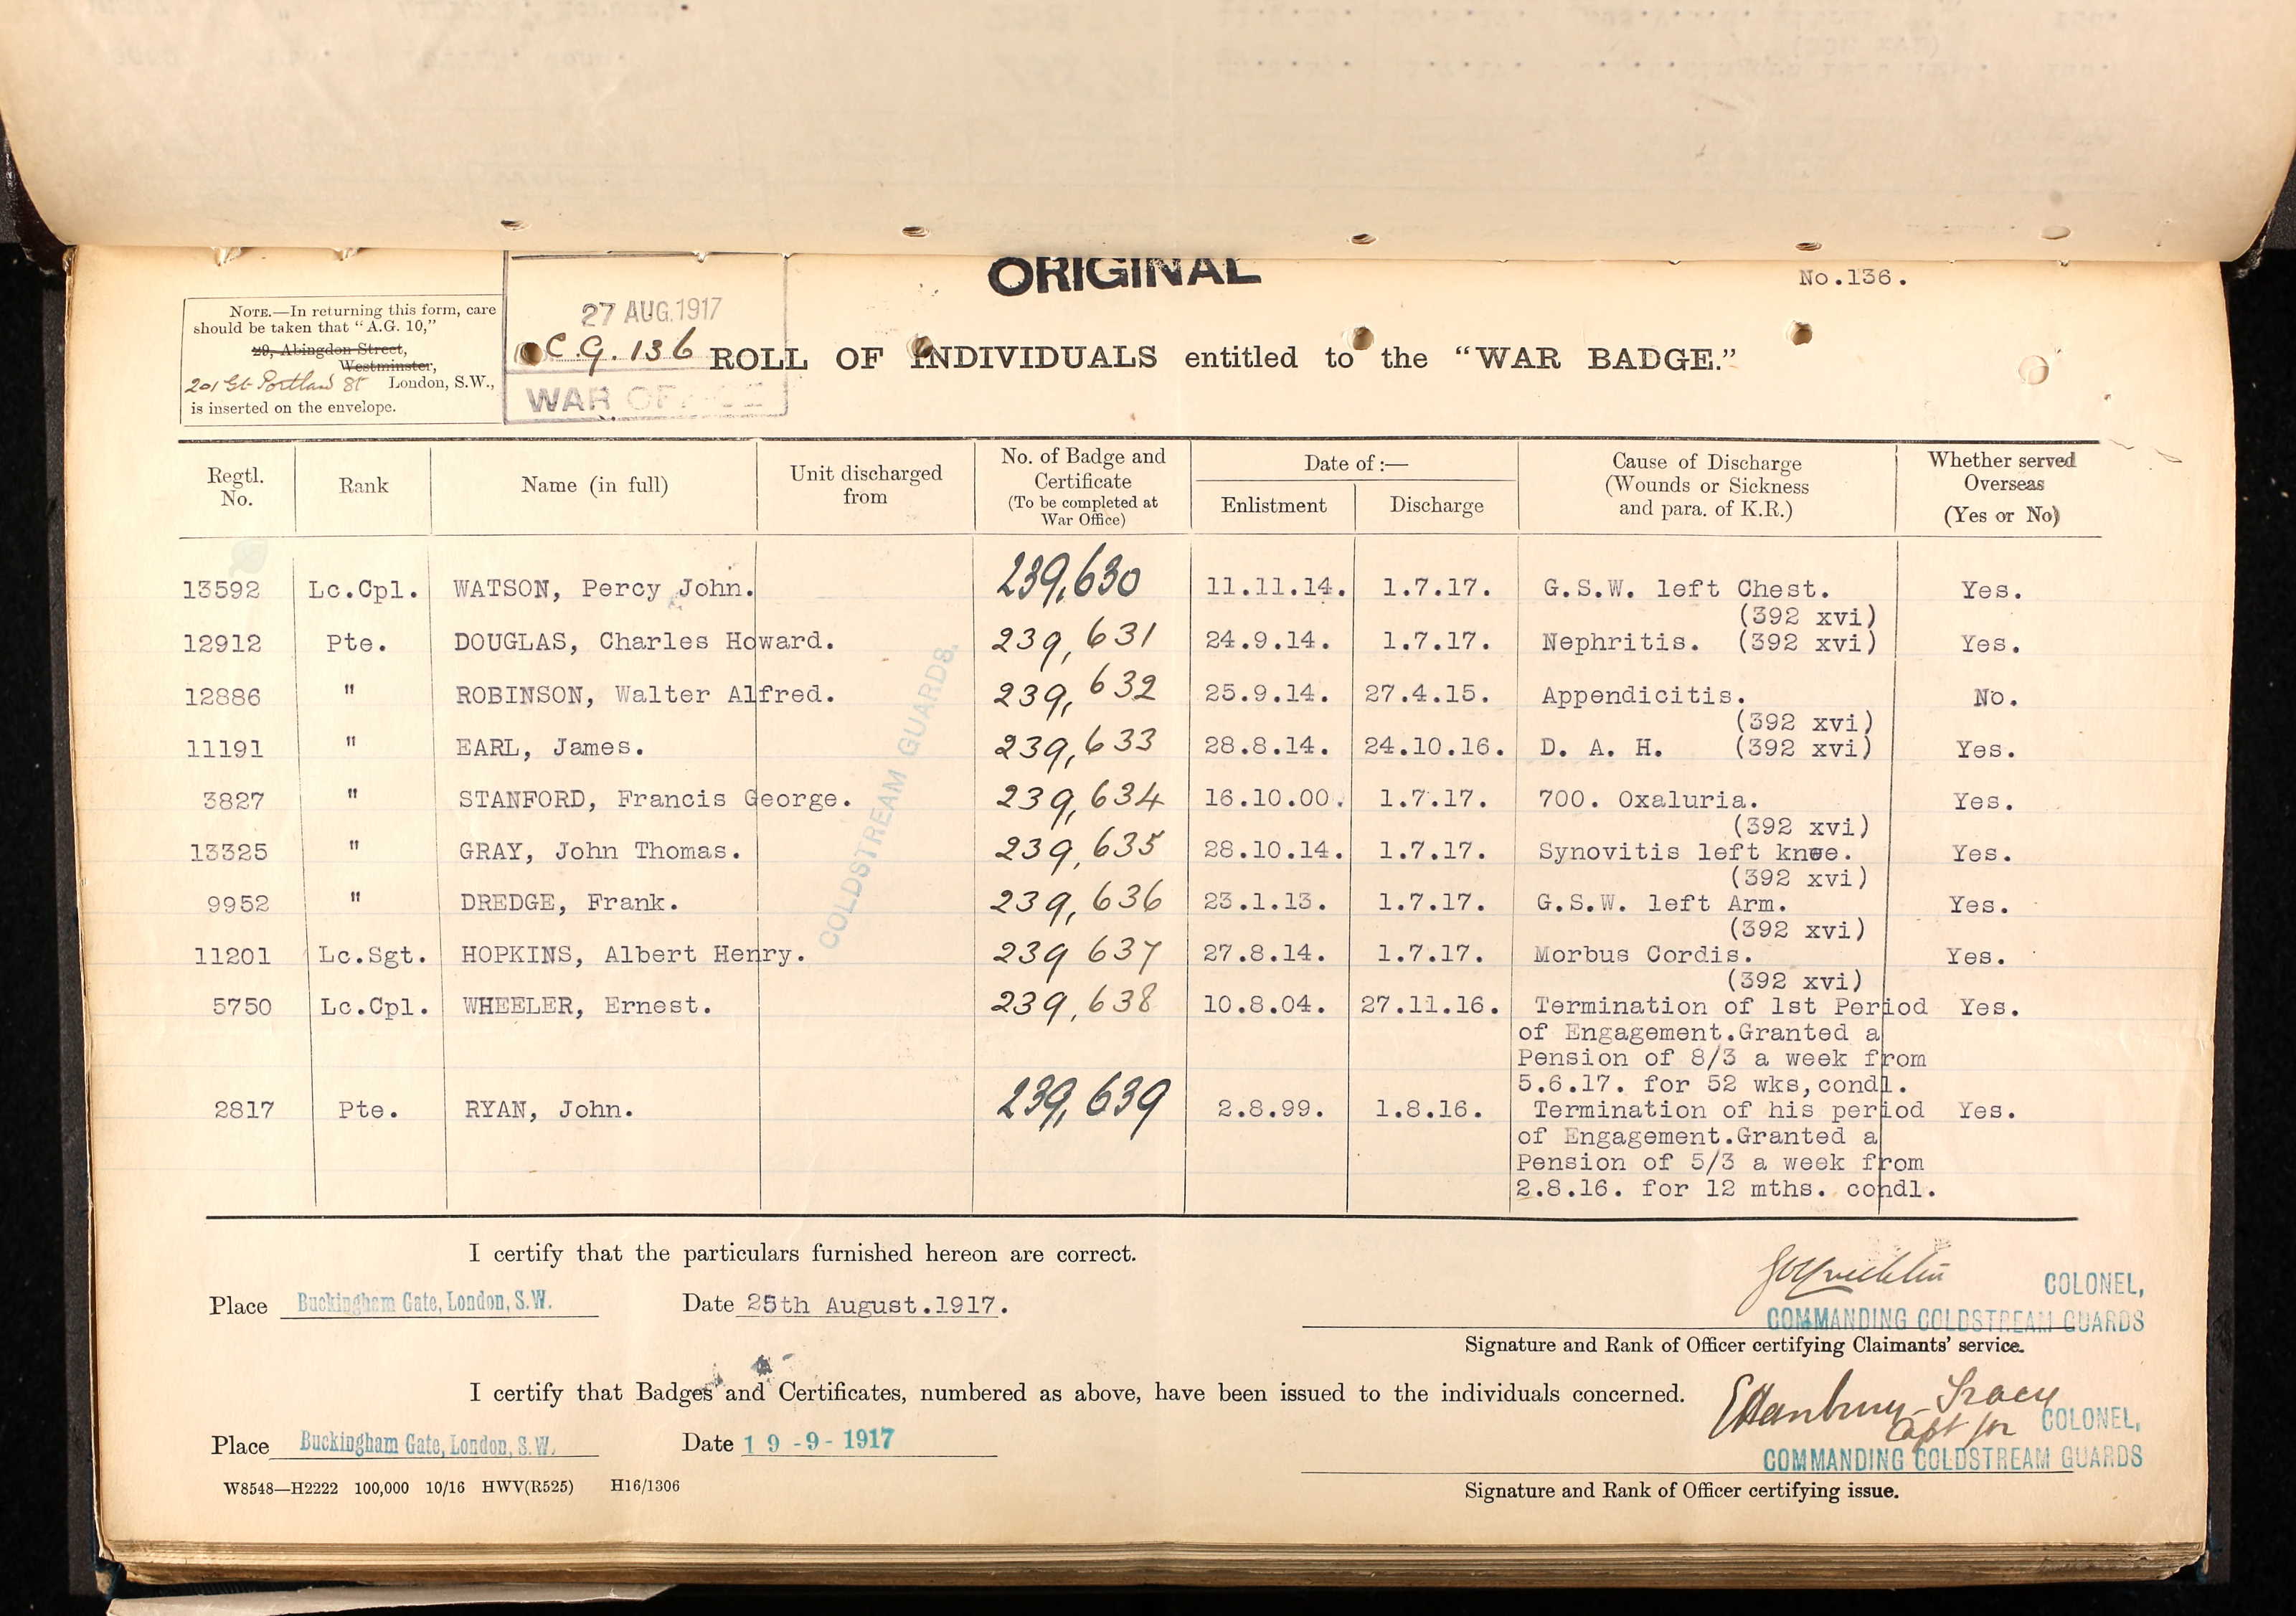 ORIGINAL
No.136.
NOTE.—In returning this form, care
should be taken that "A.G. 10,"
29, Abingdon Street,
Westminster,
201 Gt Portland St London, S.W.,
is inserted on the envelope.
27 AUG.1917
C.G. 136
WAR OFFICE
ROLL OF INDIVIDUALS entitled to the "WAR BADGE."
Regtl. No. Rank Name (in full) Unit discharged from No. of Badge and Certificate (To be completed at War Office) Date of:— Enlistment Discharge Cause of Discharge (Wounds or Sickness and para. of K.R.) Whether served Overseas (Yes or No)
13592 Lc.Cpl. WATSON, Percy John. 239,630 11.11.14. 1.7.17. G.S.W. left Chest. Yes.
(392 xvi)
12912 Pte. DOUGLAS, Charles Howard. 239,631 24.9.14. 1.7.17. Nephritis. (392 xvi) Yes.
12886 " ROBINSON, Walter Alfred. 239,632 25.9.14. 27.4.15. Appendicitis. No.
(392 xvi)
11191 " EARL, James. 239,633 28.8.14. 24.10.16. D. A. H. (392 xvi) Yes.
3827 " STANFORD, Francis George. 239,634 16.10.00. 1.7.17. 700. Oxaluria. Yes.
(392 xvi)
13325 " GRAY, John Thomas. 239,635 28.10.14. 1.7.17. Synovitis left knee. Yes.
(392 xvi)
9952 " DREDGE, Frank. 239,636 23.1.13. 1.7.17. G.S.W. left Arm. Yes.
(392 xvi)
11201 Lc.Sgt. HOPKINS, Albert Henry. 239 637 27.8.14. 1.7.17. Morbus Cordis. Yes.
(392 xvi)
5750 Lc.Cpl. WHEELER, Ernest. 239,638 10.8.04. 27.11.16. Termination of 1st Period Yes.
of Engagement.Granted a
Pension of 8/3 a week from
5.6.17. for 52 wks,condl.
2817 Pte. RYAN, John. 239,639 2.8.99. 1.8.16. Termination of his period Yes.
of Engagement.Granted a
Pension of 5/3 a week from
2.8.16. for 12 mths. condl.
COLDSTREAM GUARDS.
I certify that the particulars furnished hereon are correct.
Place Buckingham Gate, London, S.W. Date 25th August.1917.
COLONEL,
COMMANDING COLDSTREAM GUARDS
Signature and Rank of Officer certifying Claimants' service.
I certify that Badges and Certificates, numbered as above, have been issued to the individuals concerned.
EHanbury-Tracy
Capt for COLONEL,
Place Buckingham Gate, London, S.W. Date 19-9-1917
COMMANDING COLDSTREAM GUARDS
W8548—H2222 100,000 10/16 HWV(R525) H16/1306
Signature and Rank of Officer certifying issue.